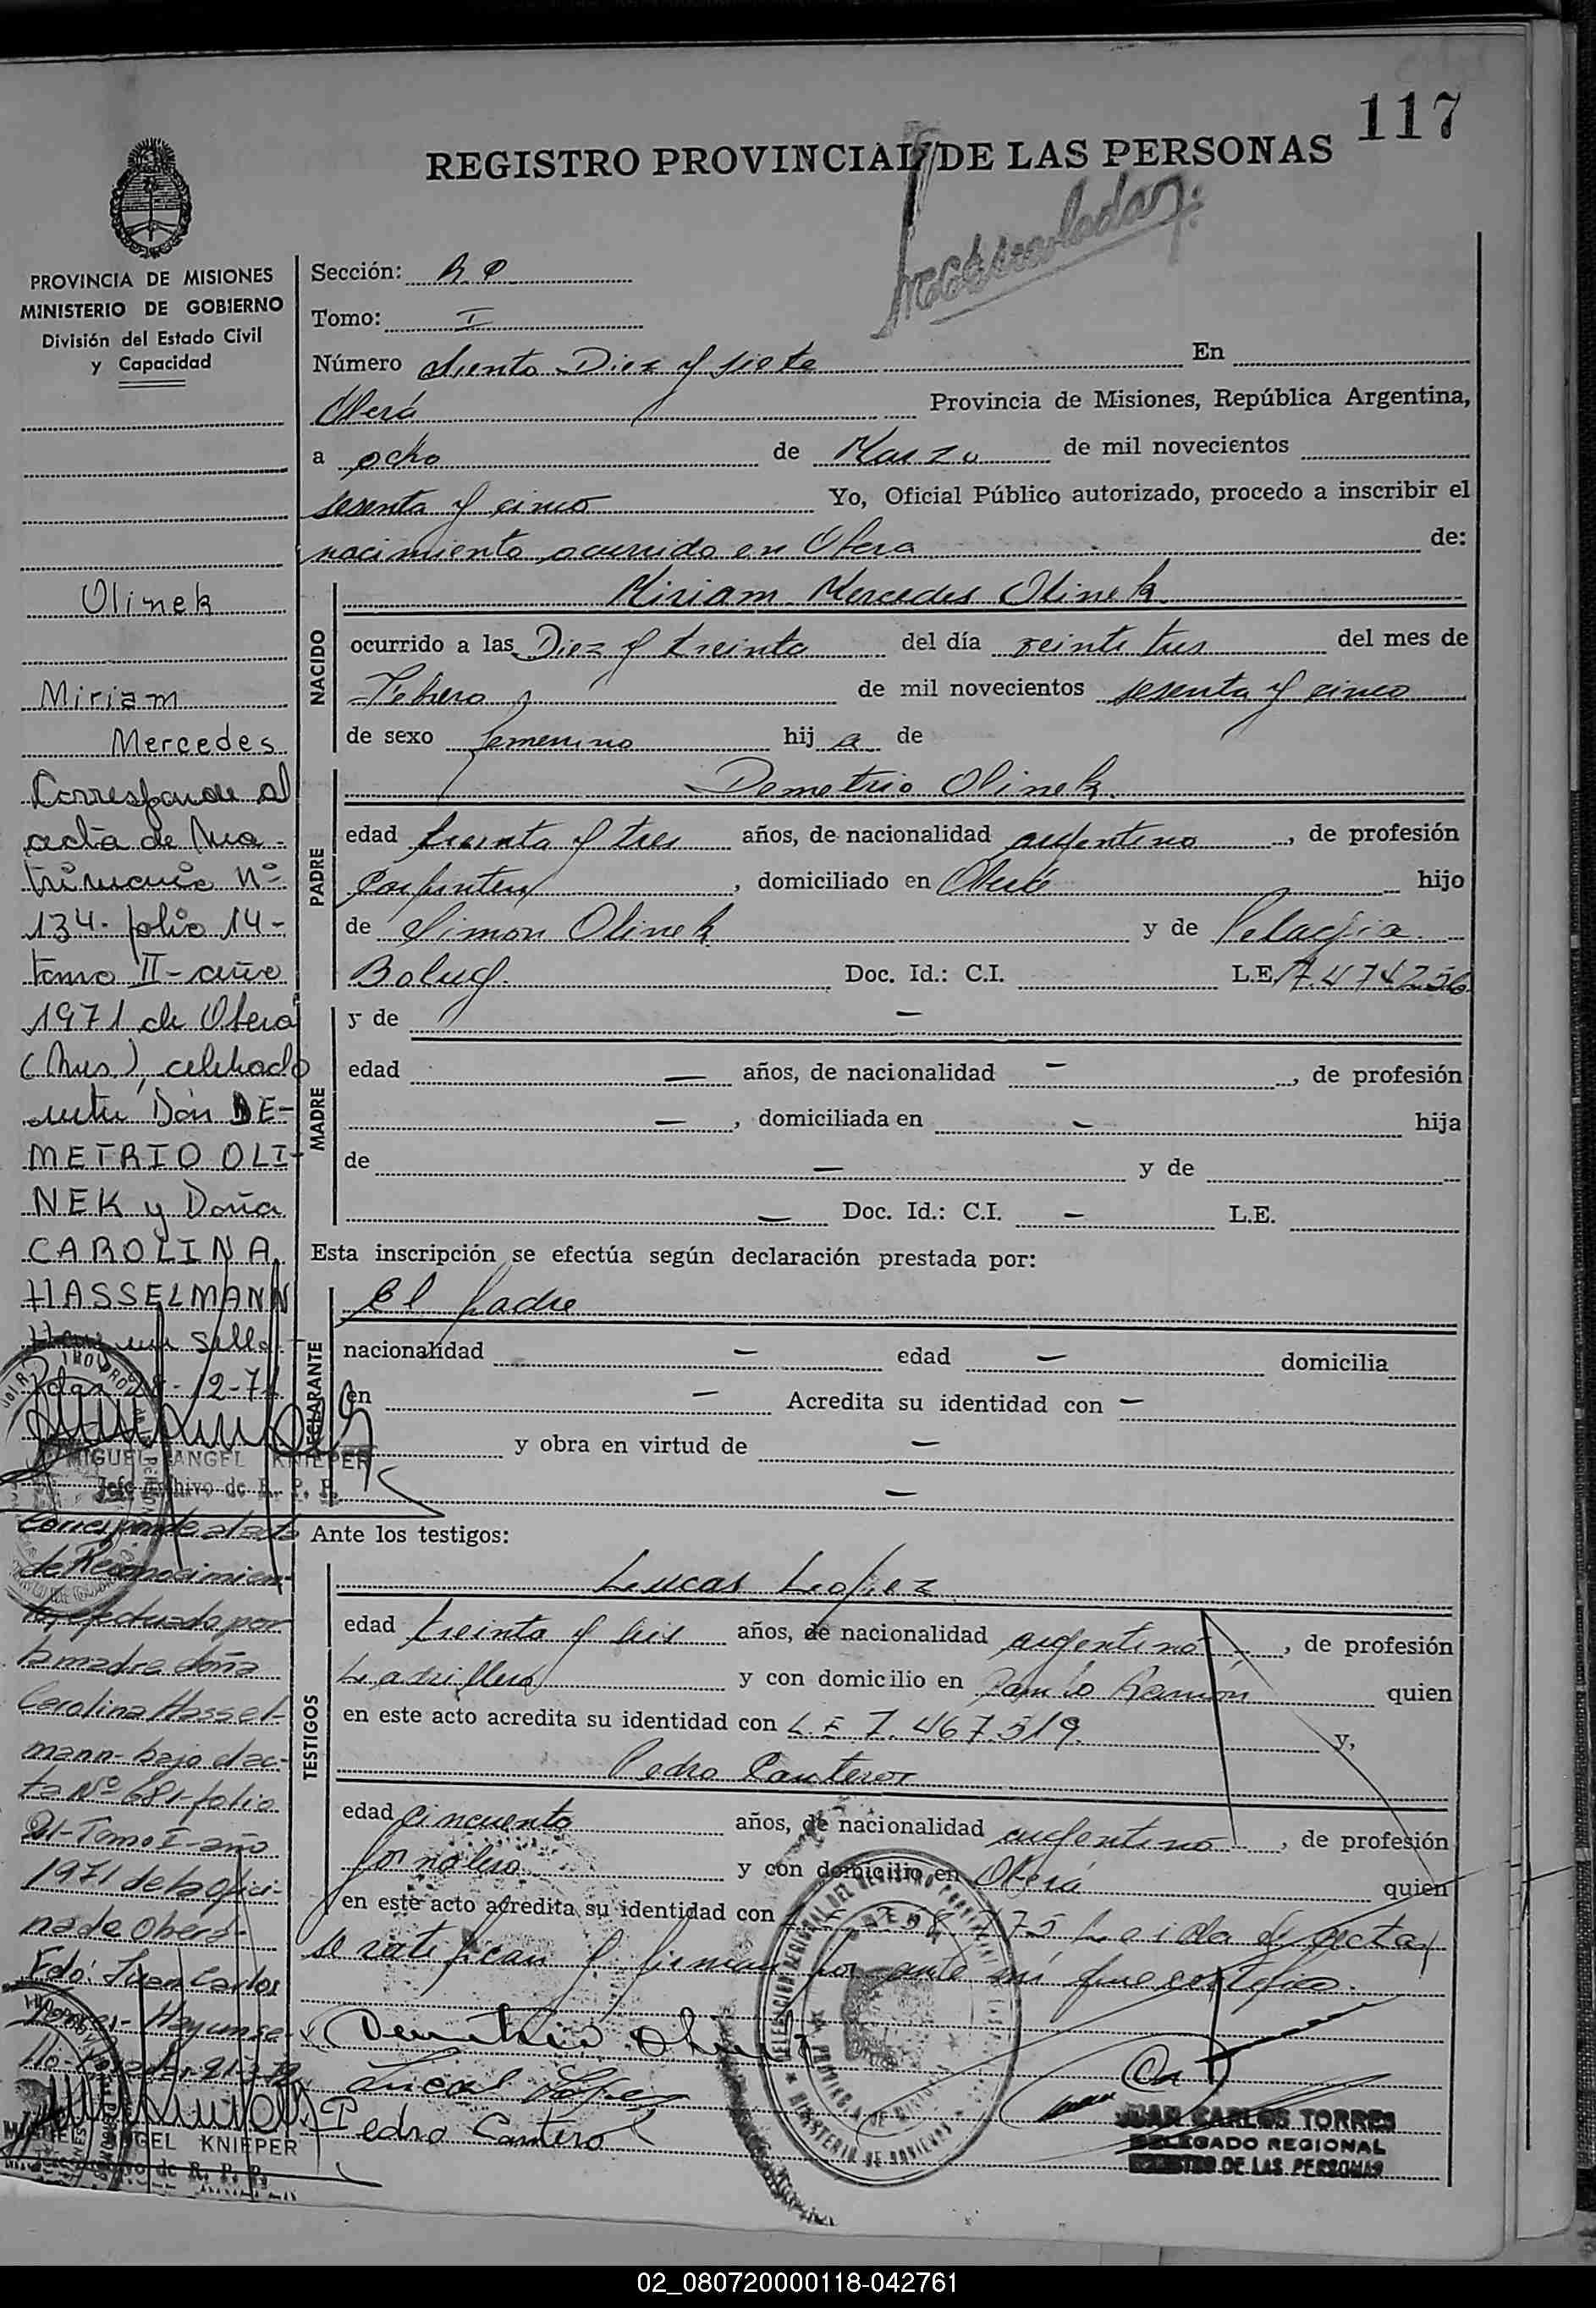 117
REGISTRO PROVINCIAL DE LAS PERSONAS
PROVINCIA DE MISIONES
MINISTERIO DE GOBIERNO
División del Estado Civil
y Capacidad
Olinek
Miriam
Mercedes
Corresponde al
acta de Ma-
trimonio Nº
134- folio 14-
tomo II- año
1971 de Oberá
(Mns.), celebrado
entre Don DE-
METRIO OLI-
NEK y Doña
CAROLINA
HASSELMANN
Hay un sello
-12-71
MIGUEL ANGEL KNIEPER
Jefe Archivo de R. P. P.
Corresponde al acta
de Reconocimien-
to efectuado por
la madre doña
Carolina Hassel-
mann- bajo el ac-
ta Nº 681- folio
21- Tomo I- año
1971 de la ofici-
na de Oberá-
Fdo: Juan Carlos
Torres- Hay un se-
llo-
MIGUEL ANGEL KNIEPER
de R. P. P.
Sección:
Tomo: I
Número Siento Diez y siete En
Oberá Provincia de Misiones, República Argentina,
a ocho de Marzo de mil novecientos
sesenta y cinco Yo, Oficial Público autorizado, procedo a inscribir el
nacimiento ocurrido en Obera de:
NACIDO
Miriam Mercedes Olinek
ocurrido a las Diez y treinta del día veinte tres del mes de
Febrero de mil novecientos sesenta y cinco
de sexo femenino hij a de
PADRE
Demetrio Olinek.
edad treinta y tres años, de nacionalidad argentino, de profesión
Carpintero, domiciliado en Oberá hijo
de Simon Olinek y de Pelagia
Boluy. Doc. Id.: C.I. L.E. 7.474256
MADRE
y de —
edad — años, de nacionalidad —, de profesión
—, domiciliada en — hija
de — y de
— Doc. Id.: C.I. — L.E.
Esta inscripción se efectúa según declaración prestada por:
DECLARANTE
El padre
nacionalidad — edad — domicilia
en — Acredita su identidad con —
y obra en virtud de —
—
Ante los testigos:
TESTIGOS
Lucas Lopez
edad treinta y seis años, de nacionalidad argentino, de profesión
Ladrillero y con domicilio en Ramón quien
en este acto acredita su identidad con L.E 7.467.519. y,
Pedro Canteros
edad cincuenta años, de nacionalidad argentino, de profesión
Jornalero y con domicilio en Oberá quien
en este acto acredita su identidad con 175 Leida el acta
se ratifican y firman por ante mí que certifico.
Demetrio Olinek
Lucas López
Pedro Cantero
JUAN CARLOS TORRES
DELEGADO REGIONAL
REGISTRO DE LAS PERSONAS
02_080720000118-042761